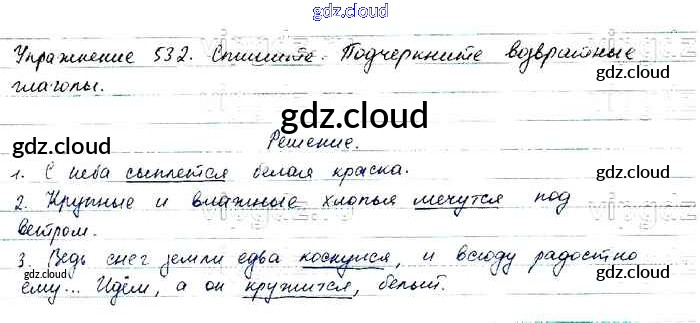 gdz.cloud
Упражнение 532. Спишите. Подчеркните возвратные
gdz.cloud
глаголы.
gdz.cloud
gdz.cloud
Решение.
gdz.cloud
gdz.cloud
1. С неба сыплется белая краска.
2. Крупные и влажные хлопья мечутся под
vipgdz.ru
ветром.
3. Ведь снег земли едва коснулся, и всюду радостно
gdz.cloud
gdz.cloud
ему... Идём, а он кружится, белый.
gdz.cloud